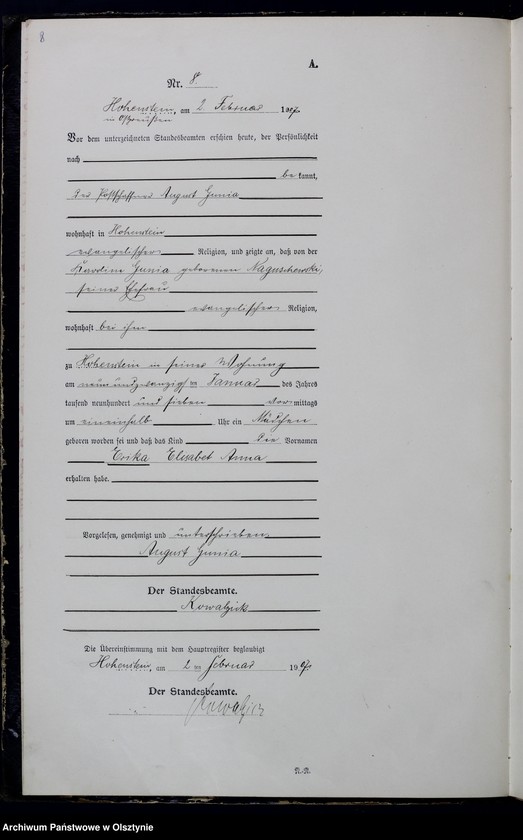 8
A.
Nr. 8.
Hohenstein, am 2. Februar 1907
in Ostpreußen
Vor dem unterzeichneten Standesbeamten erschien heute, der Persönlichkeit
nach
be kannt,
der Postschaffner August Gunia
wohnhaft in Hohenstein
evangelischer Religion, und zeigte an, daß von der
Karoline Gunia geborenen Naguschewski,
seiner Ehefrau
evangelischer Religion,
wohnhaft bei ihm
zu Hohenstein in seiner Wohnung
am neunundzwanzigsten Januar des Jahres
tausend neunhundert und sieben vormittags
um eineinhalb Uhr ein Mädchen
geboren worden sei und daß das Kind die Vornamen
Erika Elisabet Anna
erhalten habe.
Vorgelesen, genehmigt und unterschrieben
August Gunia
Der Standesbeamte.
Kowalzick
Die Übereinstimmung mit dem Hauptregister beglaubigt
Hohenstein, am 2ten Februar 1907
Der Standesbeamte.
Kowalzick
N.-N.
Archiwum Państwowe w Olsztynie